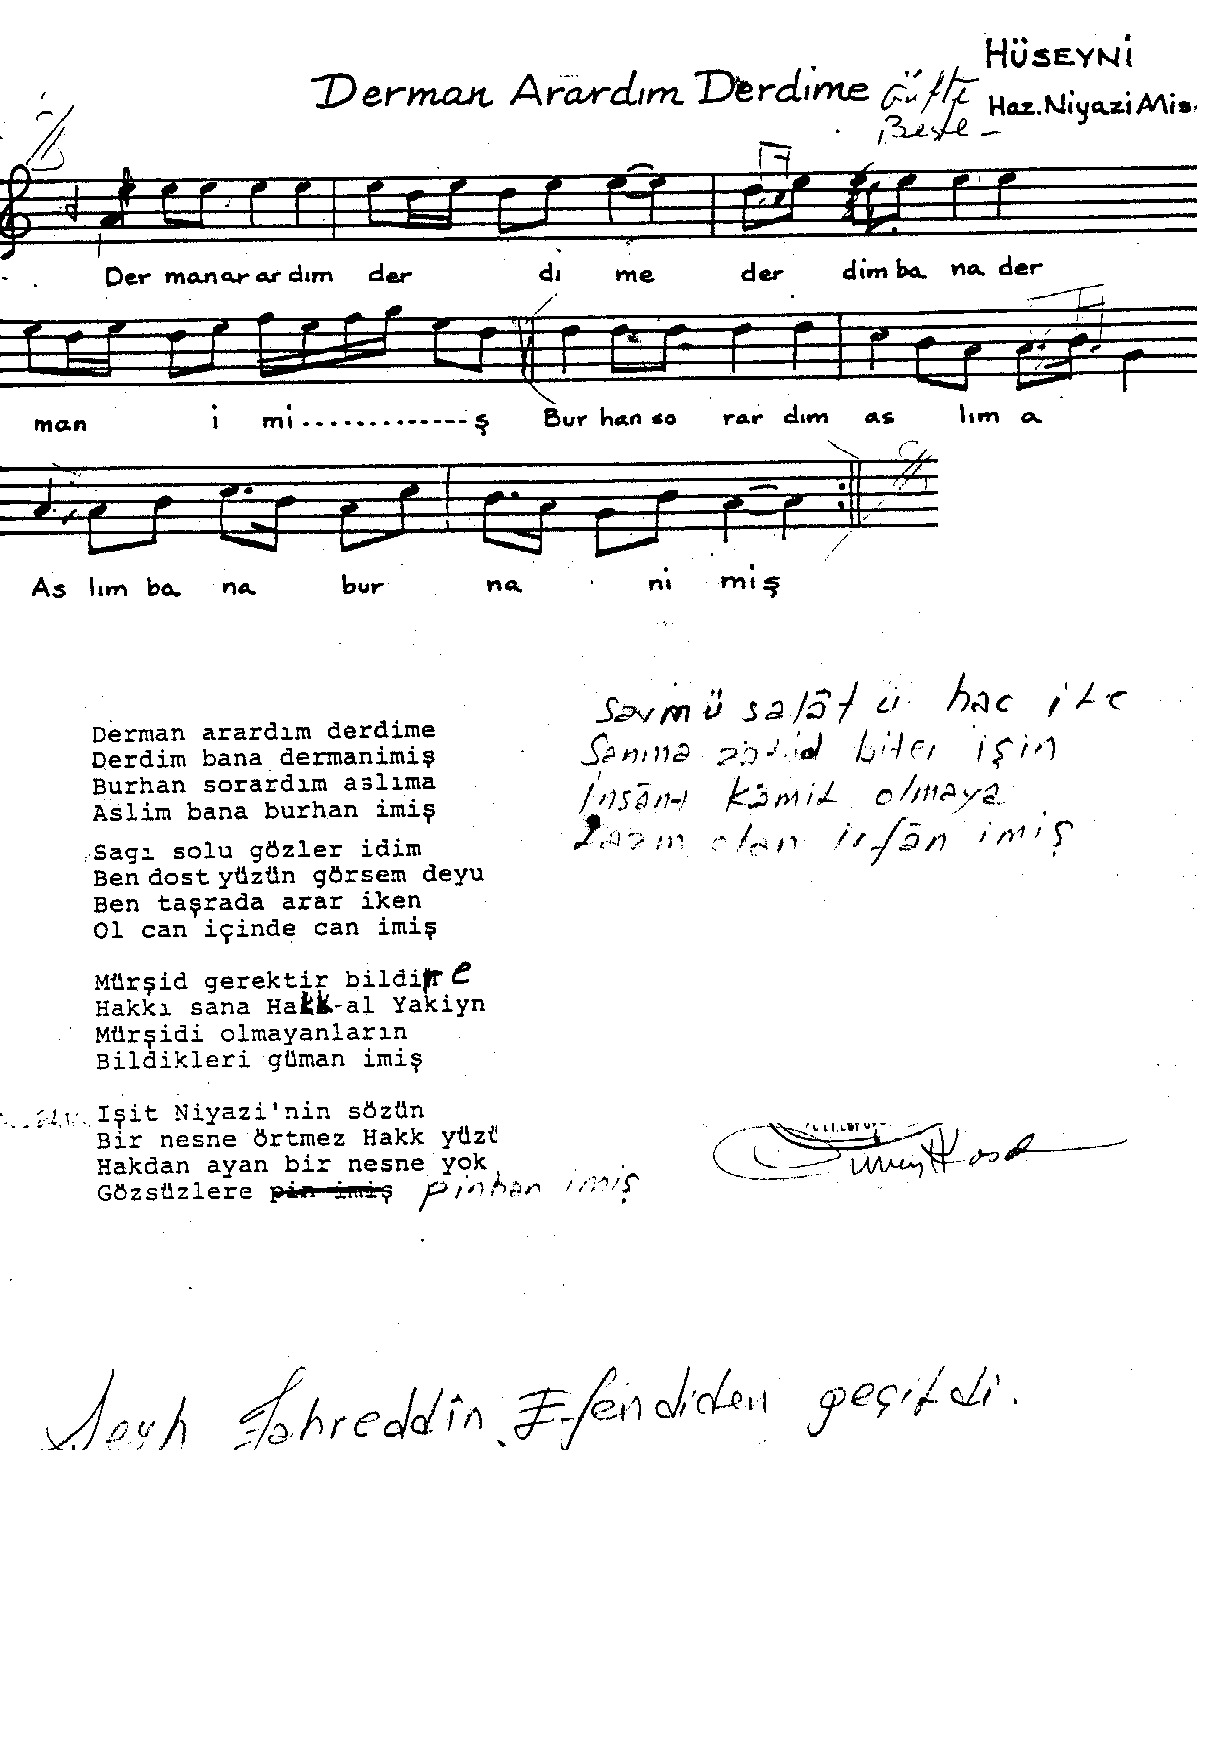 HÜSEYNİ
Derman Arardım Derdime Güfte Haz.Niyazi Mis.
Beste -
Der man ar ar dım der di me der dim ba na der
man i mi.............ş Bur han so rar dım as lım a
As lım ba na bur na ni miş
Derman arardım derdime
Derdim bana dermanimiş
Burhan sorardım aslıma
Aslim bana burhan imiş
Sagı solu gözler idim
Ben dost yüzün görsem deyu
Ben taşrada arar iken
Ol can içinde can imiş
Mürşid gerektir bildire
Hakkı sana Hakk-al Yakiyn
Mürşidi olmayanların
Bildikleri güman imiş
Işit Niyazi'nin sözün
Bir nesne örtmez Hakk yüzü
Hakdan ayan bir nesne yok
Gözsüzlere pin imiş pinhan imiş
Savmü salât ü hac ile
Sanma zâhid biter işin
İnsân-ı kâmil olmaya
Lazım olan irfân imiş
Şeyh Fahreddîn Efendiden geçildi.